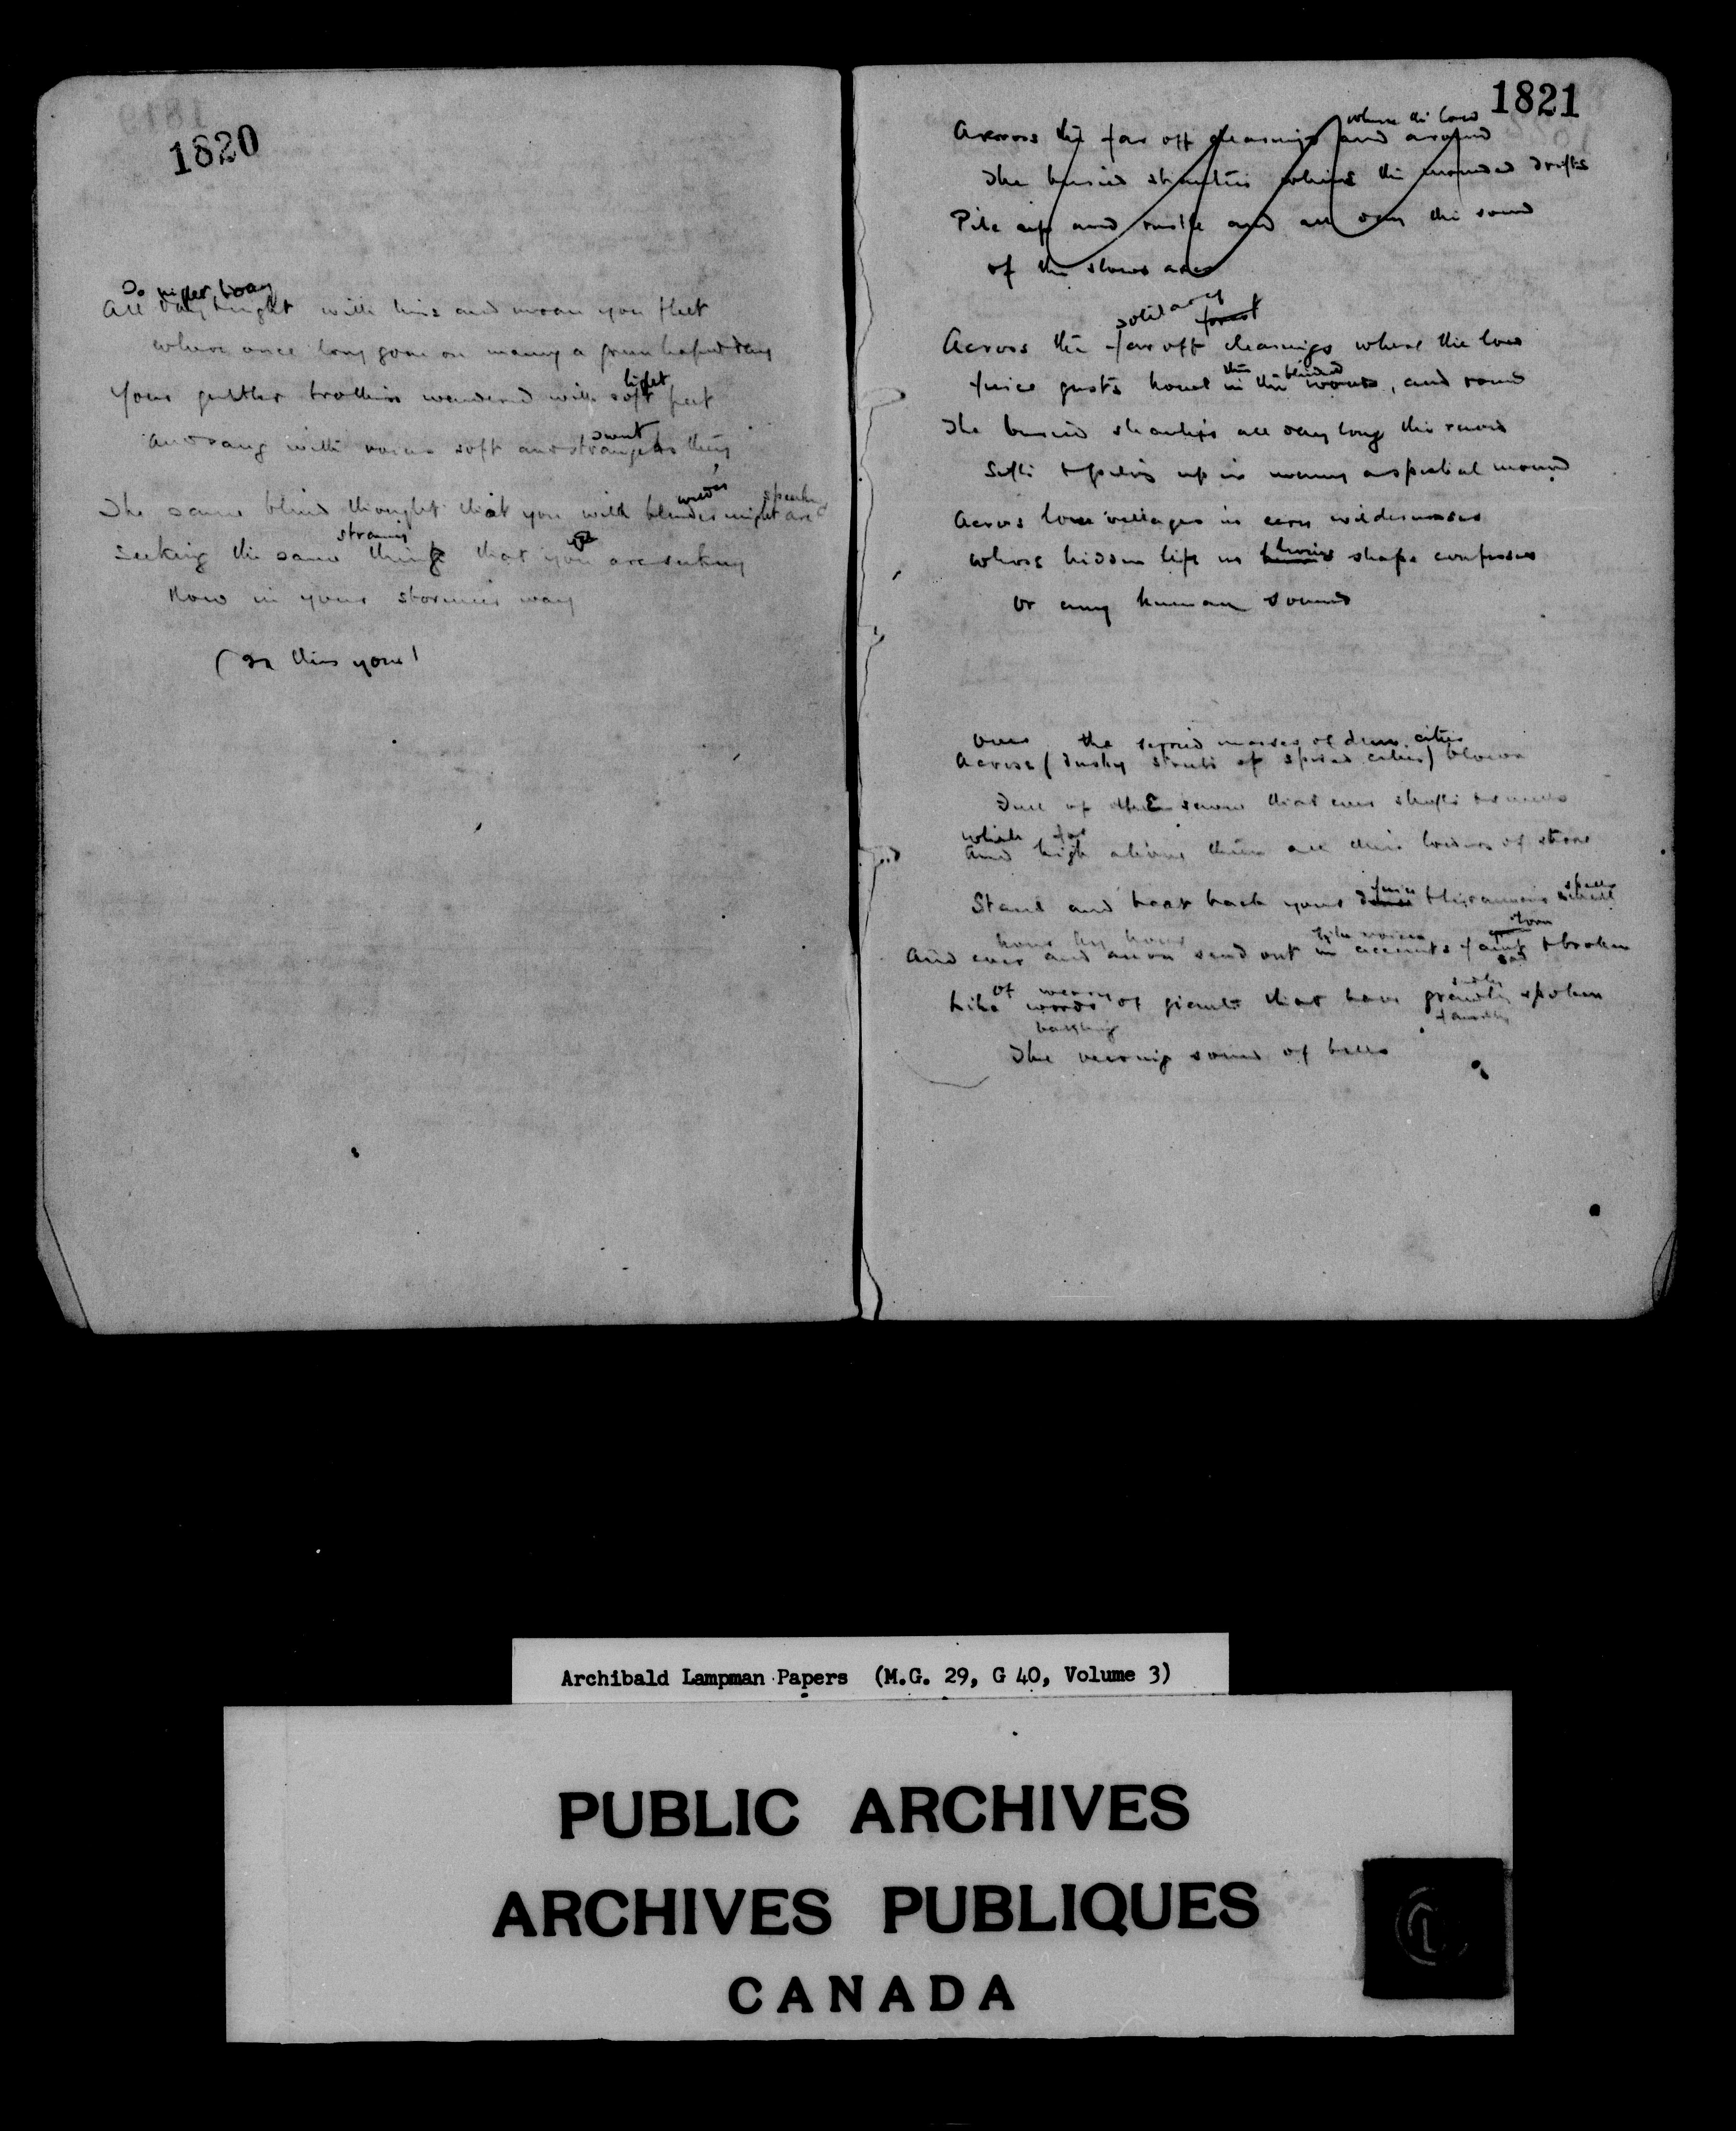 1820
So
All day tonight with hiss and moan you fleet
Where once long gone on many a green leafed day
light
Your gentler brothers wandered with soft feet
sweet
And sang with voices soft and strange as they
words speaking
The same blind thought that you with blinder might are
strains
Seeking the same things that you are seeking
Now in your stormier way
1821
where the lone
Across the far off clearings and around
The buried shanties where the mounded drifts
Pile up and rustle and all day the sound
of the
solitary forest
Across the far off clearings where the lone
the blinded
fierce gusts howl in the woods, and round
The buried shanties all day long the snow
Sifts & piles up in many a spectral mound
Across lone villages in eery wildernesses
Whose hidden life no living shape confesses
Or any human sound
over the serried masses of dim cities
Across (dusky streets of spired cities) blown
Dull of the snow that ever shifts & swells
while far
And high above them all their towers of stone
fierce spells
Stand and beat back your tyrannous
hour by hour like voices torn
And ever and anon send out in accents faint & broken
sad
of weary
Like words of giants that have grandly spoken
The veering sound of bells
Archibald Lampman Papers (M.G. 29, G 40, Volume 3)
PUBLIC ARCHIVES
ARCHIVES PUBLIQUES
CANADA